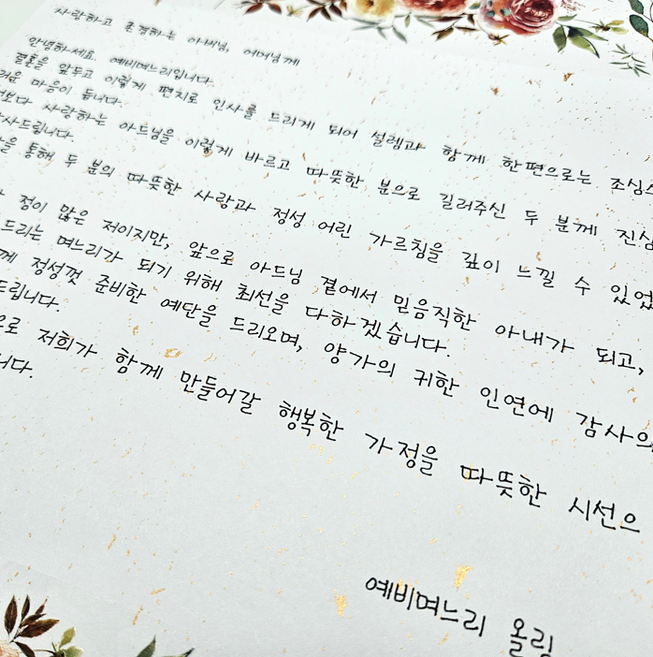 사랑하고 존경하는 아버님, 어머님께
안녕하세요. 예비며느리입니다.
결혼을 앞두고 이렇게 편지로 인사를 드리게 되어 설렘과 함께 한편으로는 조심스
러운 마음이 듭니다.
보다 사랑하는 아드님을 이렇게 바르고 따뜻한 분으로 길러주신 두 분께 진심
사드립니다.
을 통해 두 분의 따뜻한 사랑과 정성 어린 가르침을 깊이 느낄 수 있었
정이 많은 저이지만, 앞으로 아드님 곁에서 믿음직한 아내가 되고,
드리는 며느리가 되기 위해 최선을 다하겠습니다.
께 정성껏 준비한 예단을 드리오며, 양가의 귀한 인연에 감사의
드립니다.
으로 저희가 함께 만들어갈 행복한 가정을 따뜻한 시선으
니다.
예비며느리 올림